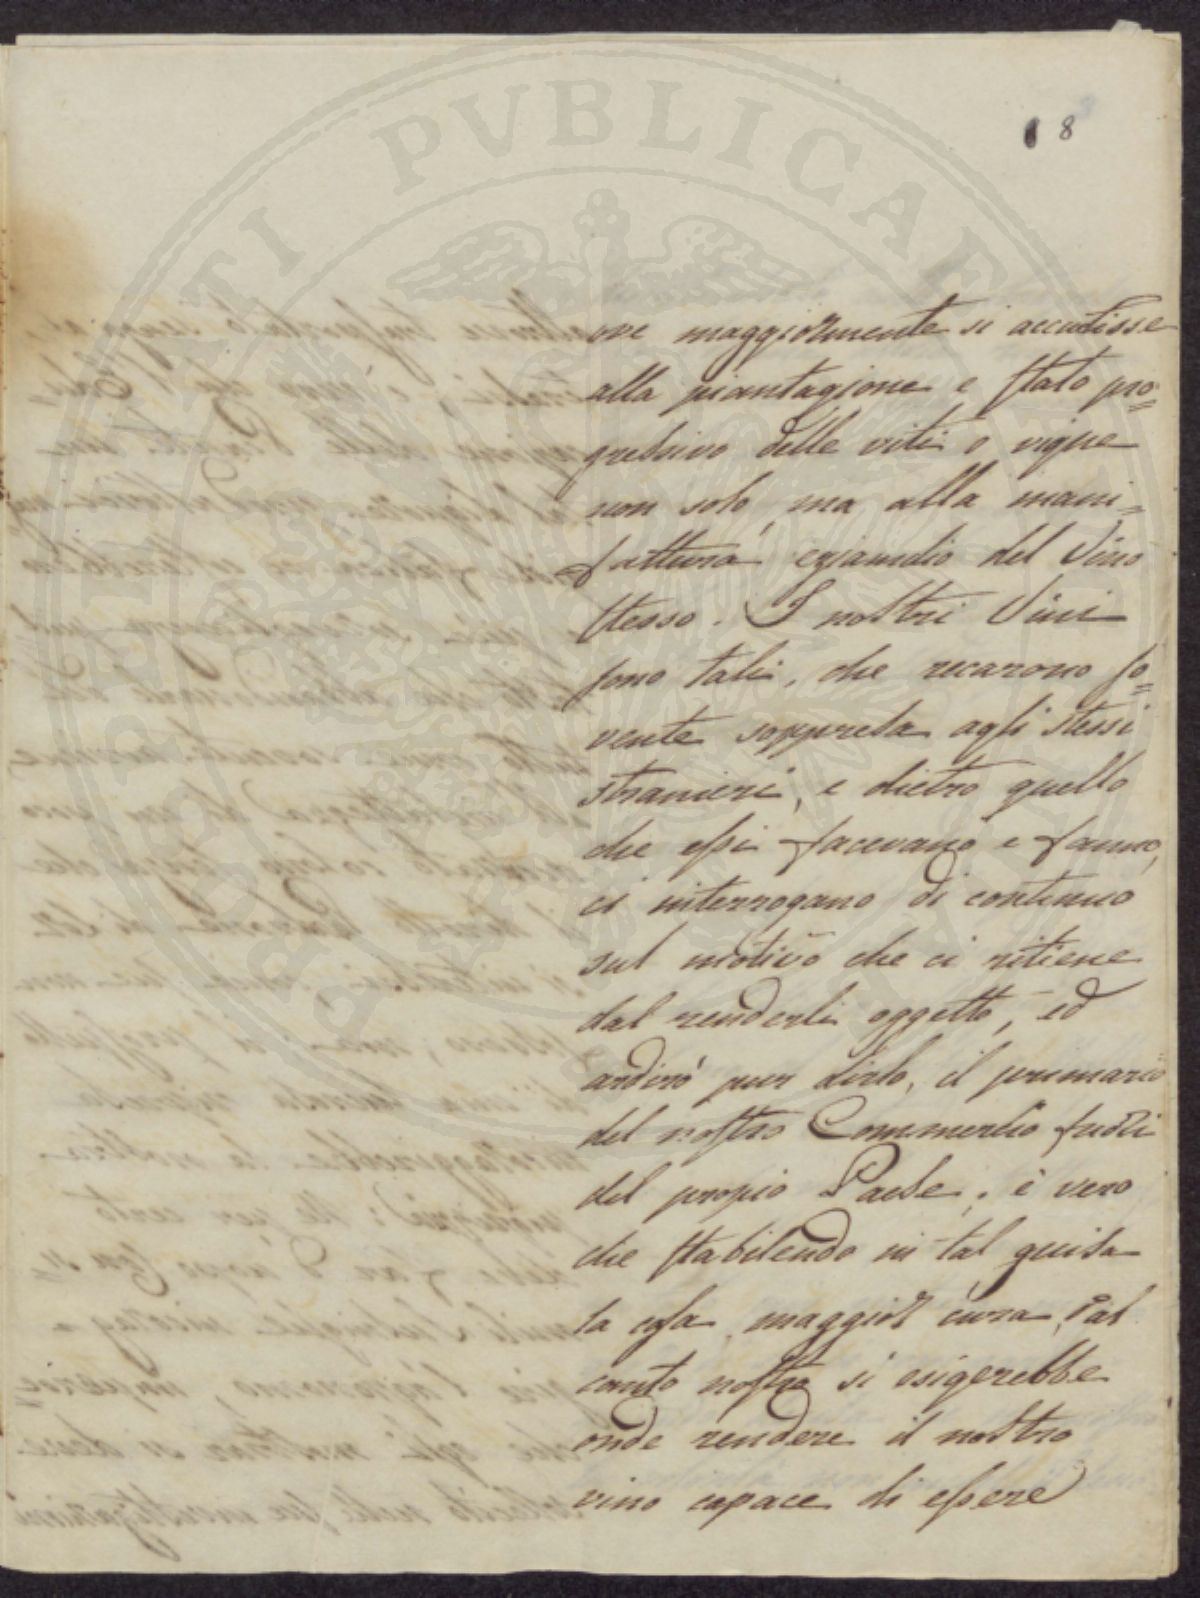 8
ove maggiormente si accudisse
alla piantagione e stato pro=
gressivo delle viti o vigne
non solo, ma alla mani=
=fattura eziandio del Vino
stesso. I nostri Vini
sono tali, che recarono so=
vente sorpresa agli stessi
stranieri, e dietro quello
che essi facevano e fanno,
ci interrogano di continuo
sul motivo che ci ritiene
dal renderli oggetto, ed
ardirò pur dirlo, il primario
del nostro Commercio fuori
del proprio Paese; è vero
che stabilendo in tal guisa
la cosa, maggior cura dal
canto nostro si esigerebbe
onde rendere il nostro
vino capace di essere
PVBLICAE